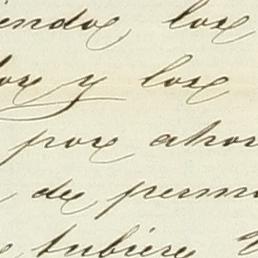 iendos, los
los y los
por ahor
de perm
tubiere